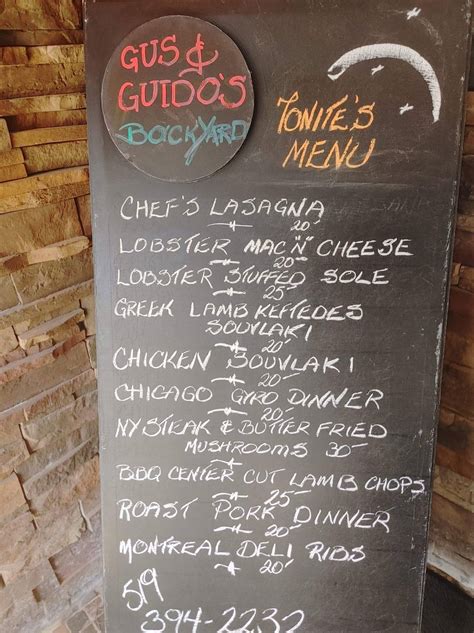 GUS &
GUIDO'S
BACKYARD
TONITE'S
MENU
CHEF'S LASAGNA
20-
LOBSTER MAC "N" CHEESE
20-
LOBSTER STUFFED SOLE
25-
GREEK LAMB KEFTEDES
SOUVLAKI
CHICKEN SOUVLAKI
20-
CHICAGO GYRO DINNER
20-
NY STEAK & BUTTER FRIED
MUSHROOMS 30-
BBQ CENTER CUT LAMB CHOPS
25-
ROAST PORK DINNER
20-
MONTREAL DELI RIBS
20-
519
394-2232